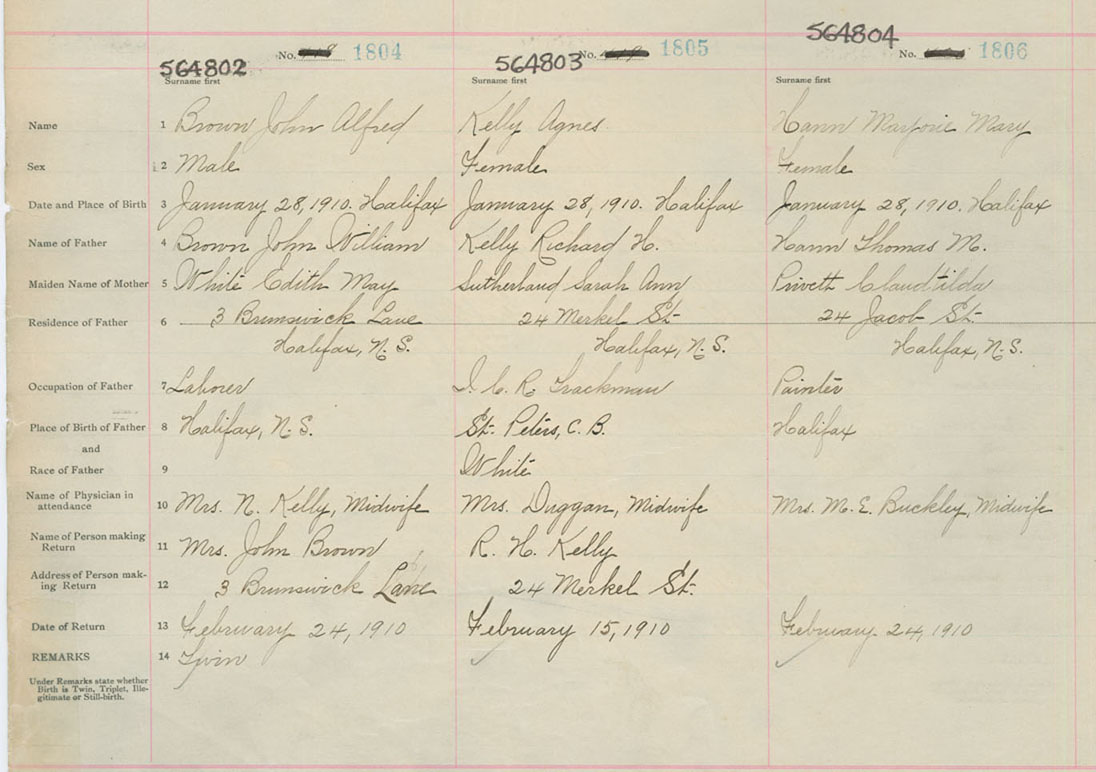 564802 No. 1804 564803 No. 1805 564804 No. 1806
Surname first Surname first Surname first
Name 1 Brown John Alfred Kelly Agnes. Hann Marjorie Mary
Sex 2 Male Female Female
Date and Place of Birth 3 January 28, 1910. Halifax January 28, 1910. Halifax January 28, 1910. Halifax
Name of Father 4 Brown John William Kelly Richard H. Hann Thomas M.
Maiden Name of Mother 5 White Edith May Sutherland Sarah Ann Privett Claudtilda
Residence of Father 6 3 Brunswick Lane 24 Merkel St. 24 Jacob St.
Halifax, N.S. Halifax, N.S. Halifax, N.S.
Occupation of Father 7 Laborer I. C. R Trackman Painter
Place of Birth of Father 8 Halifax, N.S. St. Peters, C.B. Halifax
and
Race of Father 9 White
Name of Physician in
attendance 10 Mrs. N. Kelly, Midwife Mrs. Duggan, Midwife Mrs. M. E. Buckley, Midwife
Name of Person making
Return 11 Mrs. John Brown R. H. Kelly
Address of Person mak-
ing Return 12 3 Brunswick Lane 24 Merkel St.
Date of Return 13 February 24, 1910 February 15, 1910 February 24, 1910
REMARKS 14 Twin
Under Remarks state whether
Birth is Twin, Triplet, Ille-
gitimate or Still-birth.